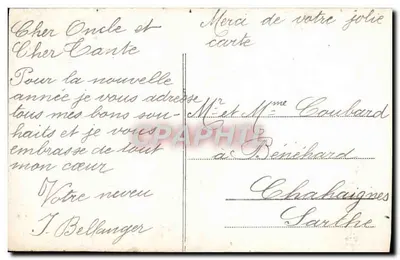 Cher Oncle et
Cher Tante
Pour la nouvelle
année je vous adresse
tous mes bons sou-
haits et je vous
embrasse de tout
mon cœur
Votre neveu
J. Bellanger
Merci de votre jolie
carte
Mr et Mme Coubard
à Bénéhard
Chahaignes
Sarthe